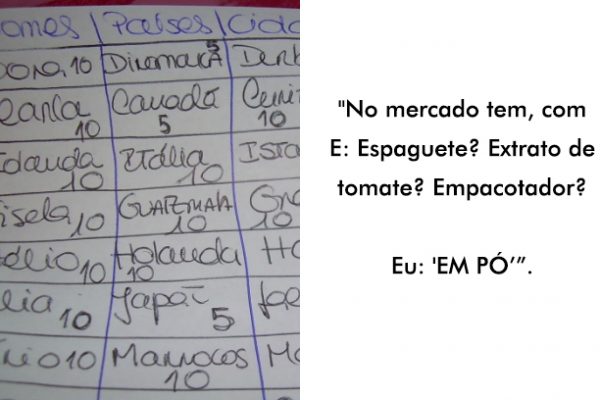 omes Países Cida
10 Dinamarca 5
Carla 10 Canadá 5 10
10 Itália 10 Ista
isela 10 GUATEMALA 10 Gra 10
élio 10 Holanda 10 Ho
10 Japão 5
10 Marrocos 10 Ma
"No mercado tem, com
E: Espaguete? Extrato de
tomate? Empacotador?
Eu: 'EM PÓ'”.